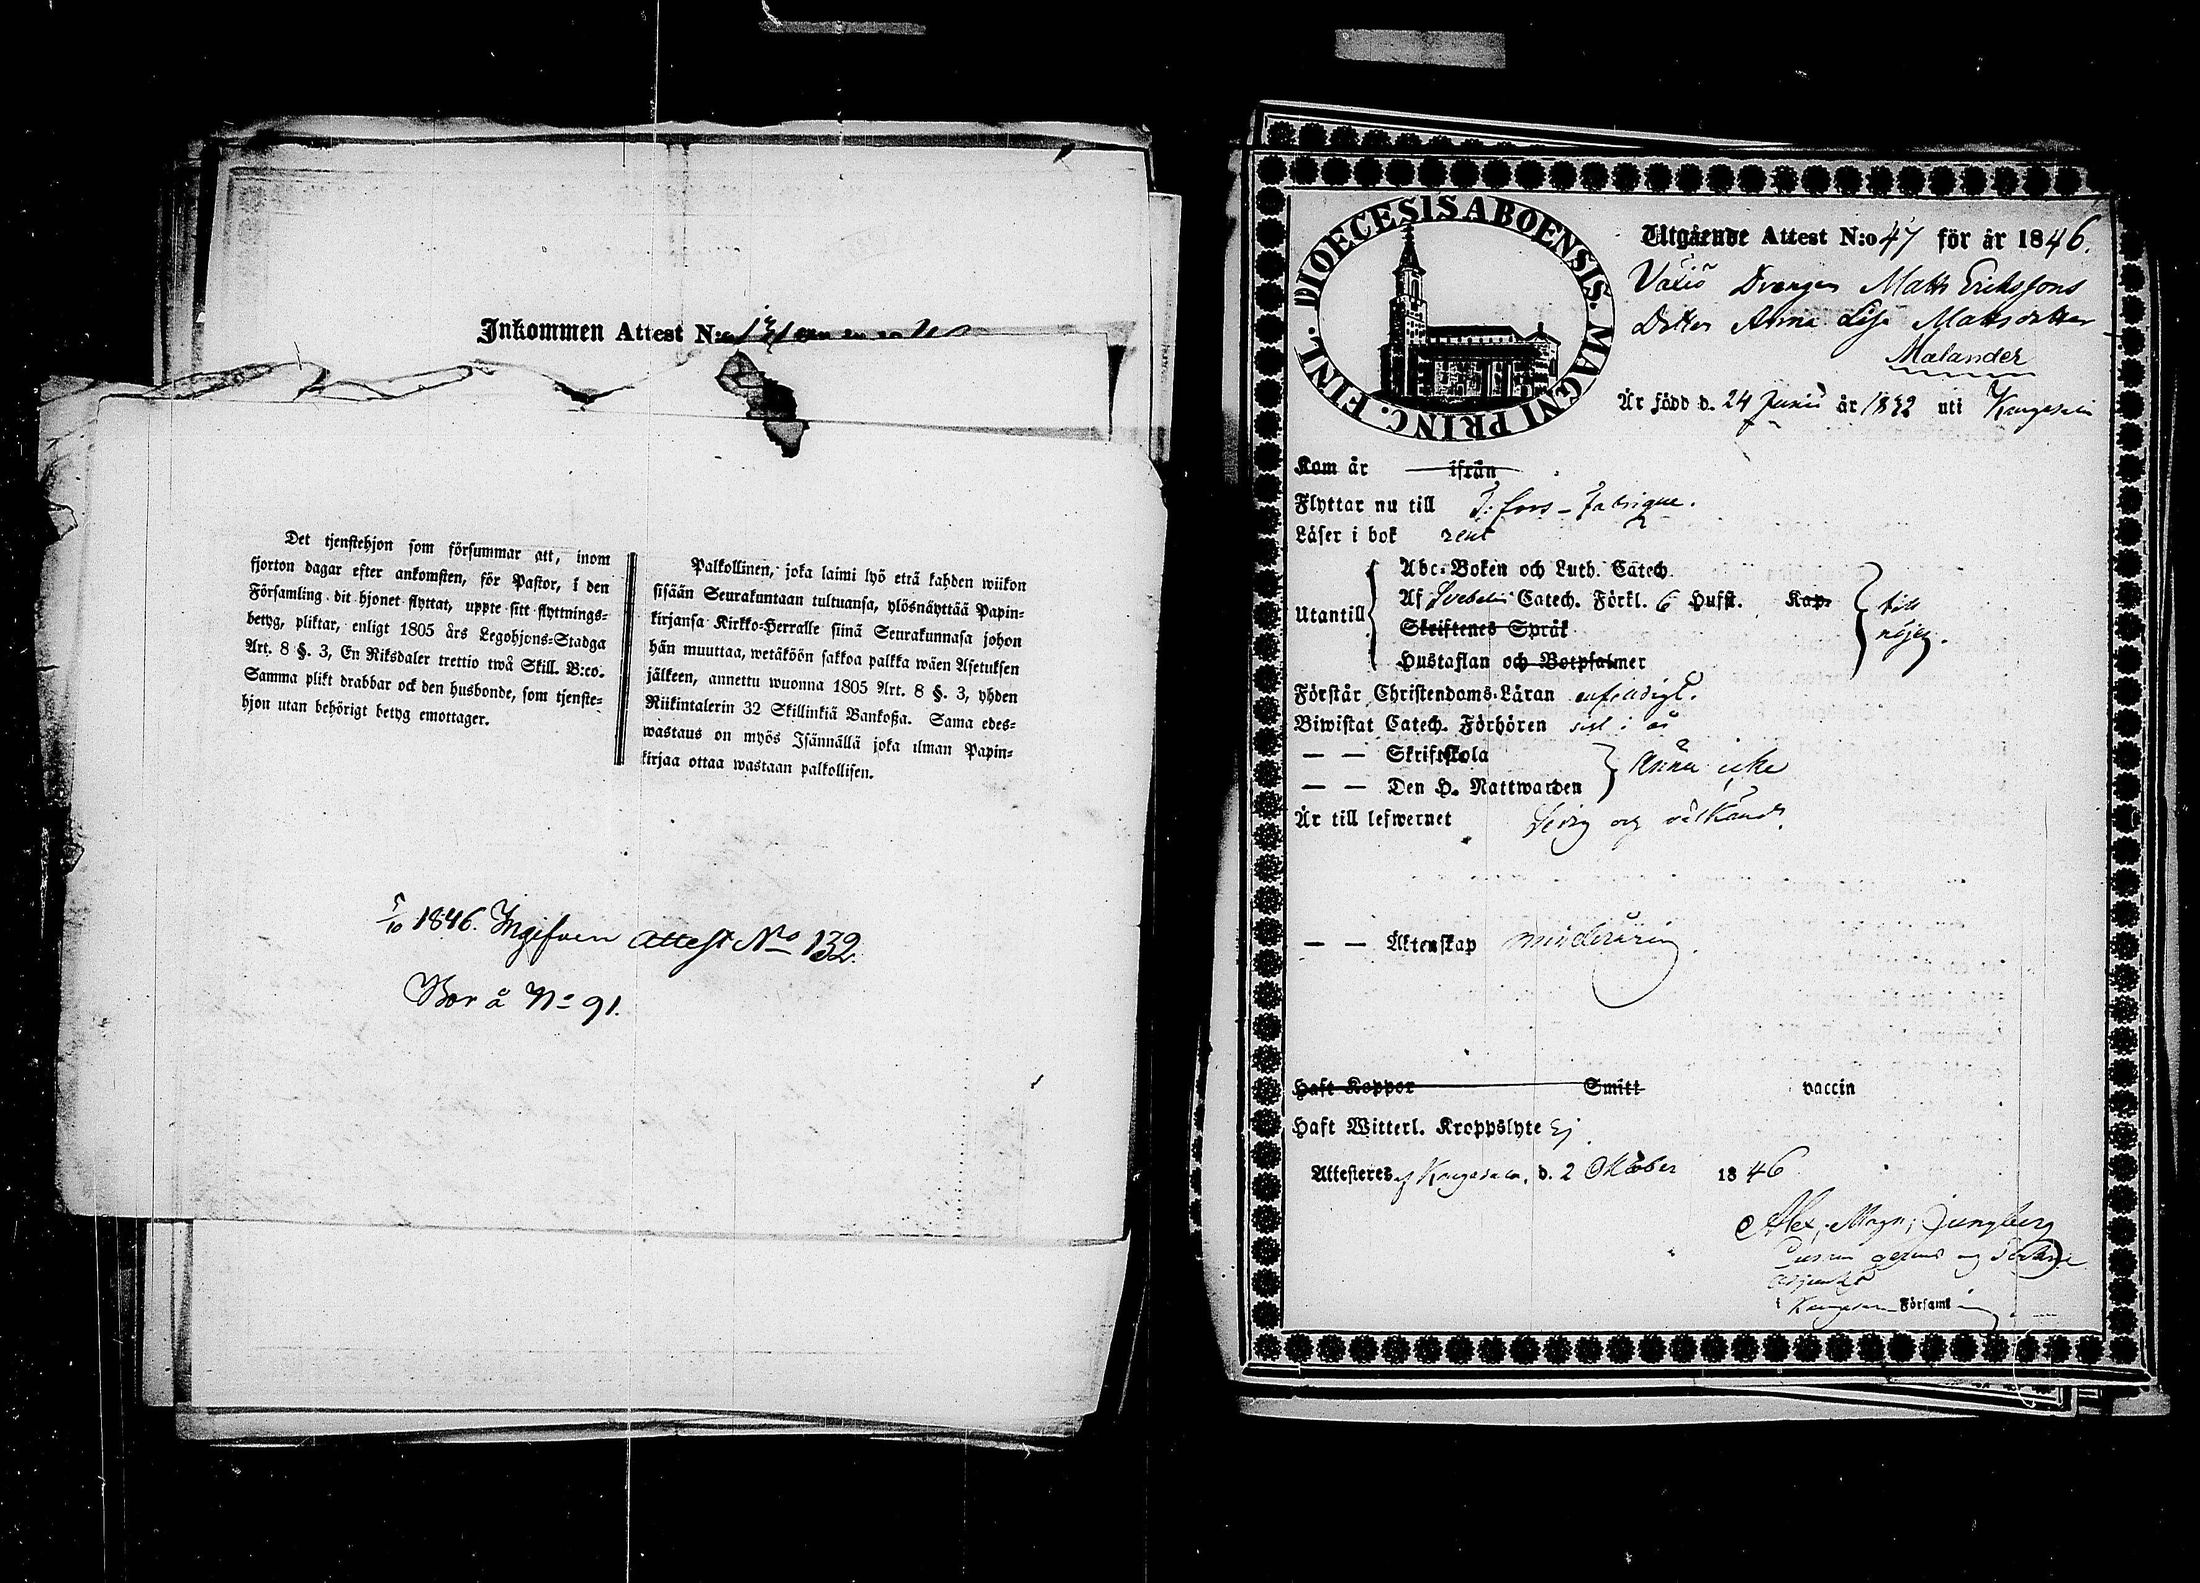 Inkommen Attest N:o 131
Det tjenstehjon som försummar att, inom
fjorton dagar efter ankomsten, för Pastor, i den
Församling dit hjonet flyttat, uppte sitt flyttnings-
betyg, pliktar, enligt 1805 års Legohjons-Stadga
Art. 8 §. 3, En Riksdaler trettio twå Skill. B:co.
Samma plikt drabbar ock den husbonde, som tjenste-
hjon utan behörigt betyg emottager.
Palkollinen, joka laimi lyö että kahden wiikon
sisään Seurakuntaan tultuansa, ylösnäyttää Papin-
kirjansa Kirkko-Herralle siinä Seurakunnasa johon
hän muuttaa, wetäköön sakkoa palkka wäen Asetuksen
jälkeen, annettu wuonna 1805 Art. 8 §. 3, yhden
Riikintalerin 32 Skillinkiä Bankoßa. Sama edes-
wastaus on myös Isännällä joka ilman Papin-
kirjaa ottaa wastaan palkollisen.
5/10 1846. Ingifven attest No 132.
Bor å No 91.
DIOECESIS ABOENSIS. MAGNI PRINC. FINL.
Utgående Attest N:o 47 för år 1846.
Drengen Matts Erikssons
Dotter Anna Lisa Mattsdotter
Malander
Är född d. 24 Junii år 1832 uti Kangasala
Kom år ifrån
Flyttar nu till T:fors-fabrique.
Läser i bok rent
Utantill
Abc-Boken och Luth. Catech.
Af Svebelii Catech. Förkl. 6 Hufst. Kap.
Skriftenes Språk
Hustaflan och Botpsalmer
till
nöjes.
Förstår Christendoms-Läran enfaldigt.
Biwistat Catech. Förhören sist i år
— — Skriftskola
— — Den H. Nattwarden
ännu icke
Är till lefwernet Sedig och välkänd.
— — Äktenskap minderårig.
Haft Koppor Smitt vaccin
Haft Witterl. Kroppslyte Ej
Attesteres af Kangasala, d. 2 Oktober 1846
Alex. Magn. Ljungberg
adjunkt
i Kangasala Församling.